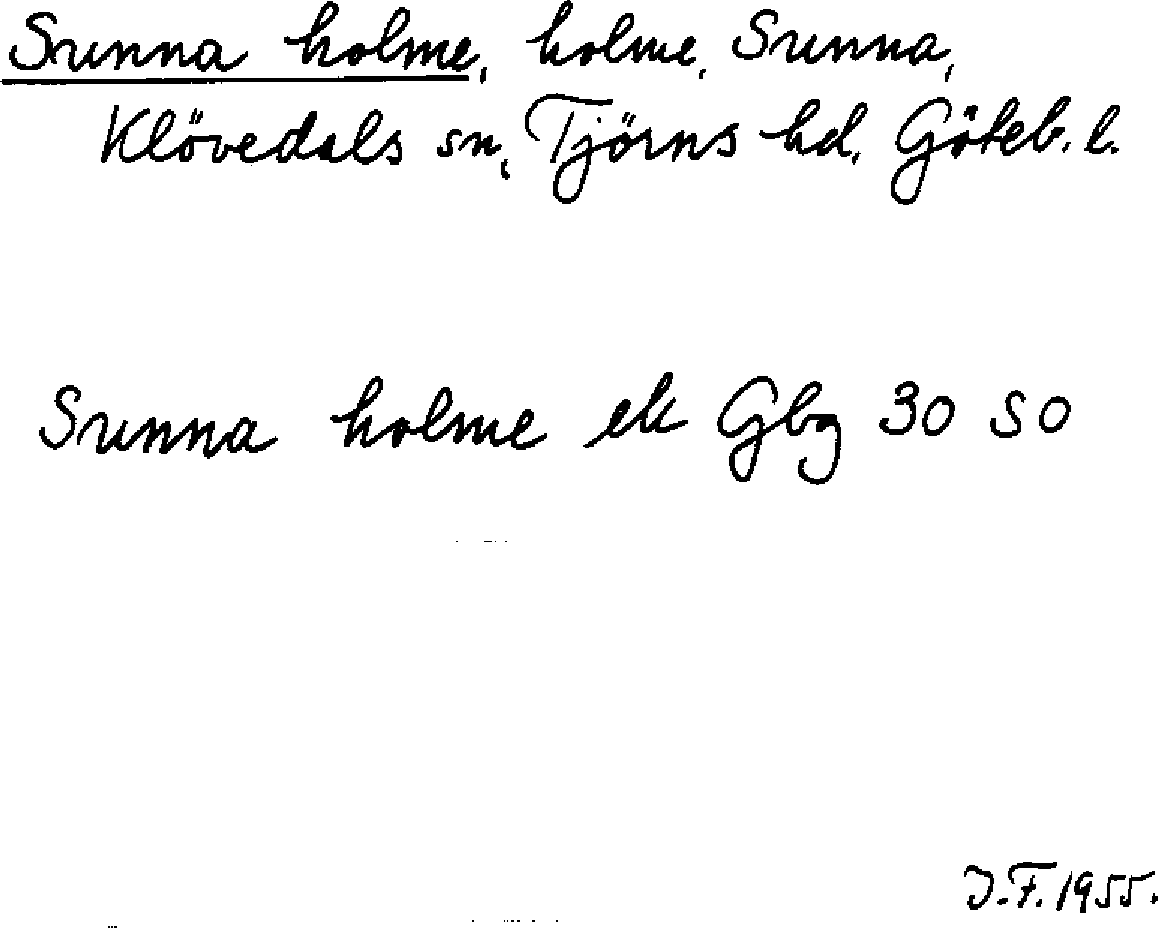 Sunna holme, holme, Sunna,
Klövedals sn, Tjörns hd, Göteb. l.
Sunna holme ek Gbg 30 SO
J.F. 1955.